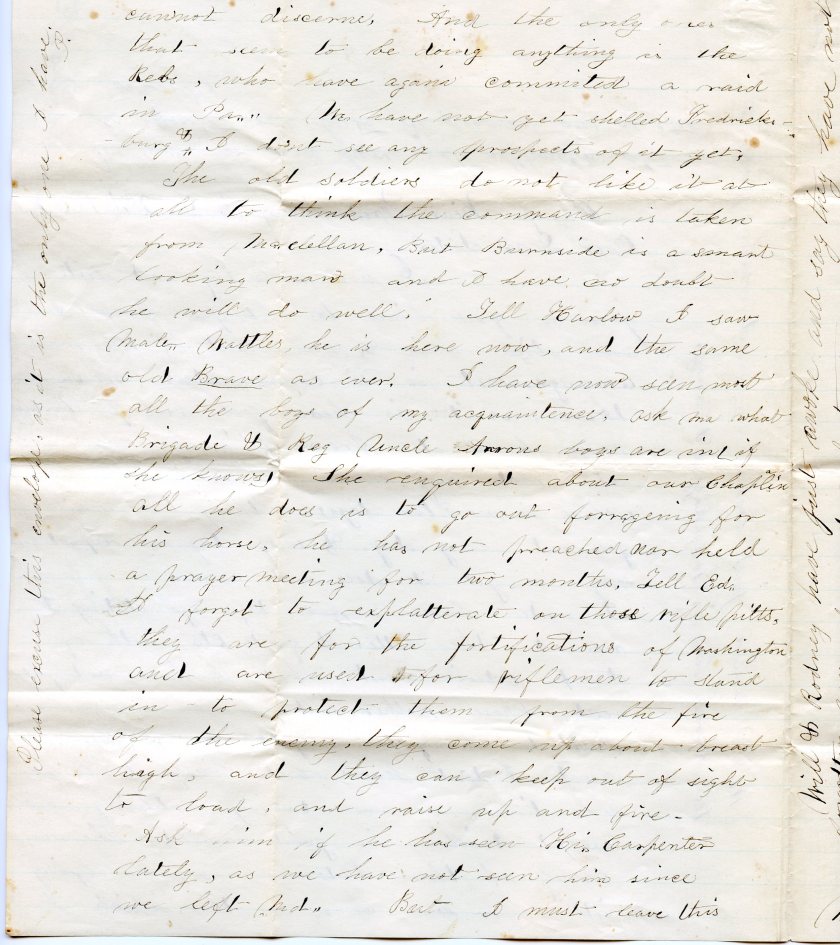 cannot discerne. And the only ones
that seem to be doing anything is the
Rebs, who have again commited a raid
in Pa.,. We have not yet shelled Fredricks-
-burg & I dont see any prospects of it yet.
The old soldiers do not like it at
all to think the command is taken
from Mcclellan, But Burnside is a smart
looking man and I have no doubt
he will do well. Tell Harlow I saw
Mate,, Wattles, he is here now, and the same
old Brave as ever. I have now seen most
all the boys of my acquaintence. ask ma what
Brigade & Reg Uncle Aarons boys are in, if
she knows, She enquired about our Chaplin
all he does is to go out forrageing for
his horse, he has not preached nor held
a prayer meeting for two months. Tell Ed.
I forgot to explatterate on those rifle pitts,
they are for the fortifications of Washington
and are used for riflemen to stand
in - to protect them from the fire
of the enemy, they come up about breast
high, and they can keep out of sight
to load, and raise up and fire -
Ask him if he has seen Hi,, Carpenter
lately, as we have not seen him since
we left Md.,. But I must leave this
Please excuse this envelope, as it is the only one I have.
P.
Will & Rodney have just awoke and say they have not